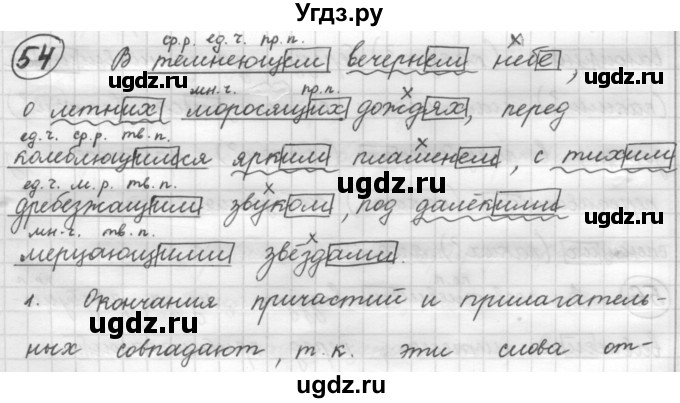 Угдз.ру
ср.р. ед.ч. пр.п.
54 В темнеющем вечернем небе,
мн.ч. пр.п.
о летних моросящих дождях, перед
ед.ч. ср.р. тв.п.
колеблющимся ярким пламенем, с тихим
ед.ч. м.р. тв.п.
дребезжащим звуком, под далёкими
мн.ч. тв.п.
мерцающими звёздами.
1. Окончания причастий и прилагатель-
ных совпадают, т.к. эти слова от-
ugdz.ru ugdz.ru ugdz.ru
ugdz.ru
ugdz.ru ugdz.ru ugdz.ru
ugdz.ru